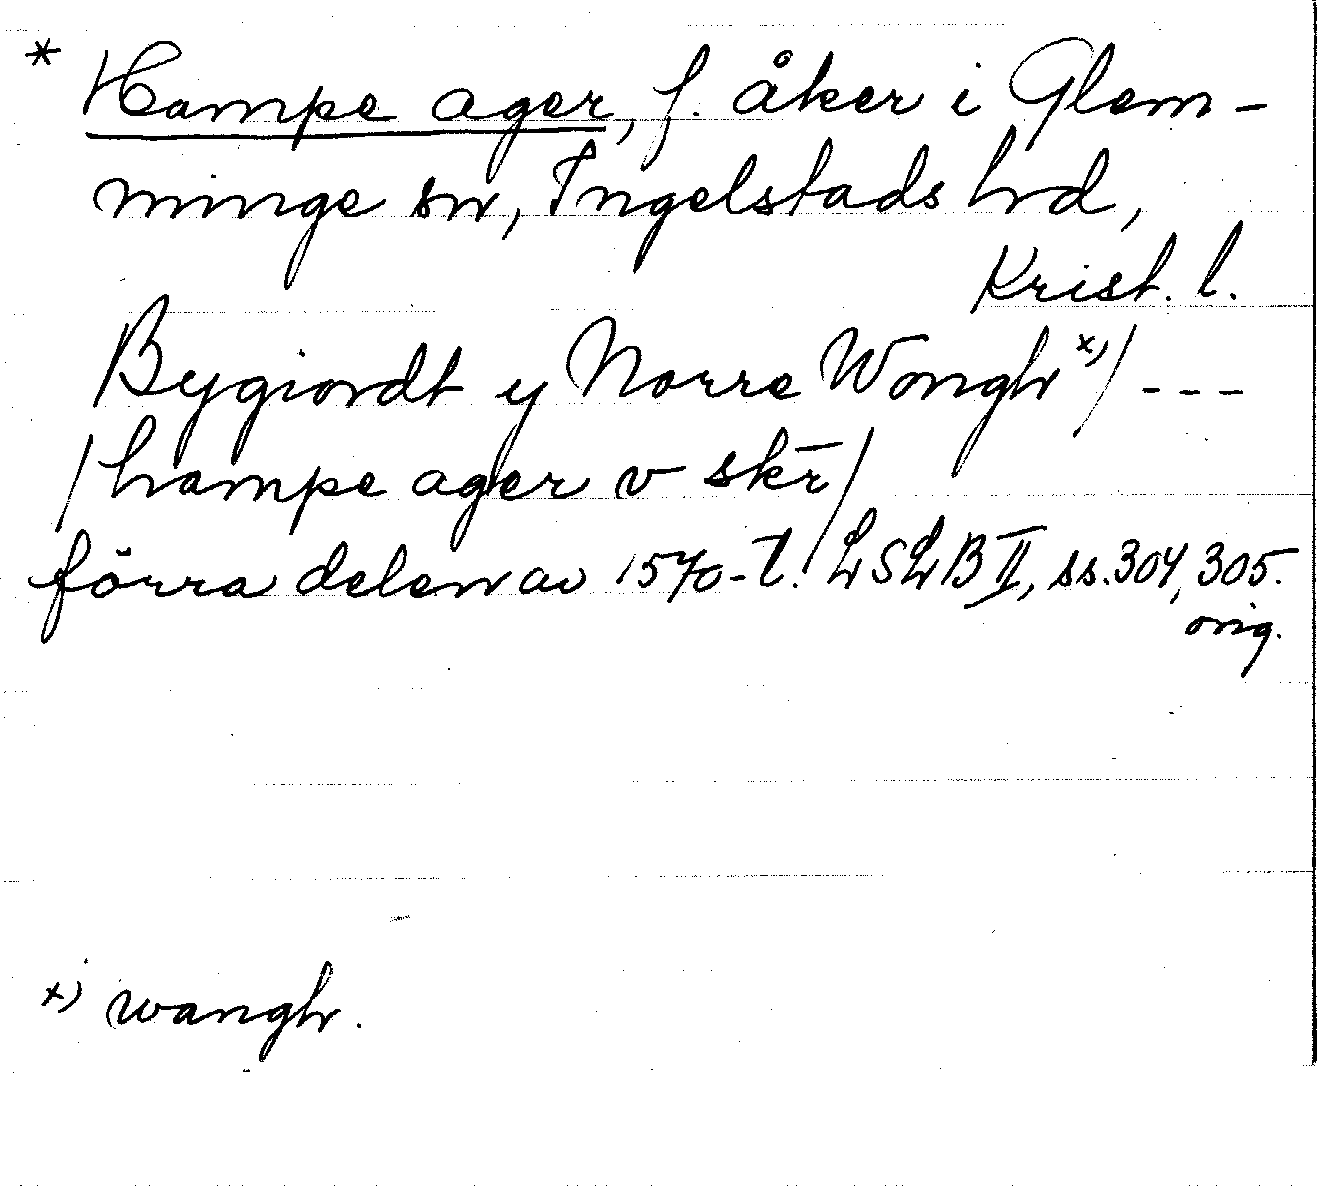 * Hampe ager, f. åker i Glem-
minge sn, Ingelstads hd,
Krist. l.
Bygiordt y Norre Wongh x) / ---
/ hampe ager v skr̄ /
förra delen av 1570-t. LSLB II, ss. 304, 305.
orig.
x) wangh.